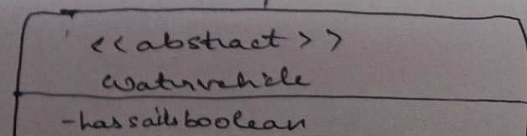 <<abstract>>
watervehicle
-hassailsboolean